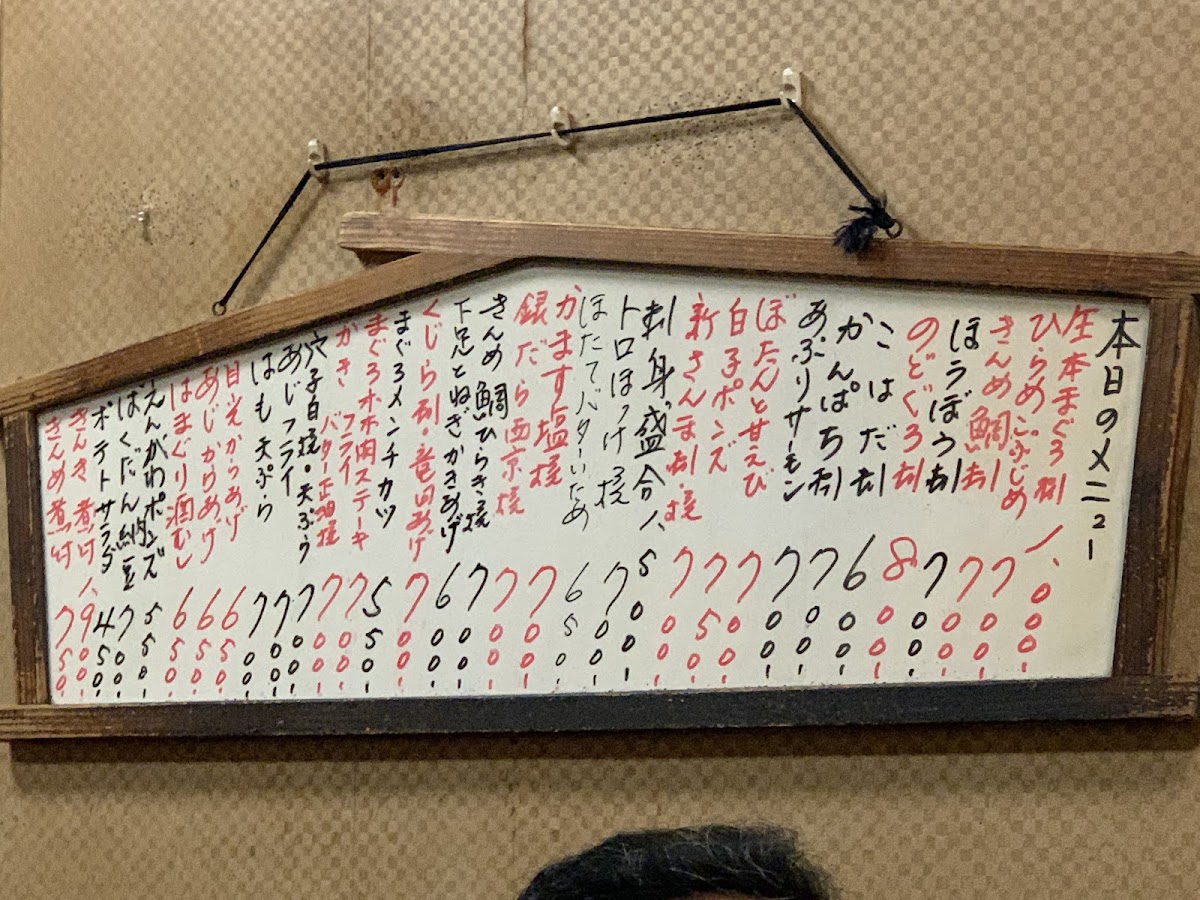 本日のメニュー
生本まぐろ刺 1、000-
ひらめこぶじめ 700-
きんめ鯛刺 700-
ほうぼう刺 700-
のどぐろ刺 800-
こはだ刺 600-
かんぱち刺 700-
あぶりサーモン 700-
ぼたんと甘えび 700-
白子ポンズ 750-
新さんま刺・焼 700-
刺身盛合 1、500-
トロほっけ焼 700-
ほたてバターいため 650-
かます塩焼 700-
銀だら西京焼 700-
きんめ鯛ひらき焼 700-
下足とねぎかきあげ 600-
くじら刺・竜田あげ 700-
まぐろメンチカツ 550-
まぐろホホ肉ステーキ 700-
かき フライ バター正油焼 700-
穴子白焼・天ぷら 700-
あじフライ 700-
はも天ぷら 700-
目光からあげ 650-
あじからあげ 650-
はまぐり酒むし 650-
えんがわポンズ 550-
ばくだん納豆 700-
ポテトサラダ 400-
きんき煮付 1、950-
きんめ煮付 750-